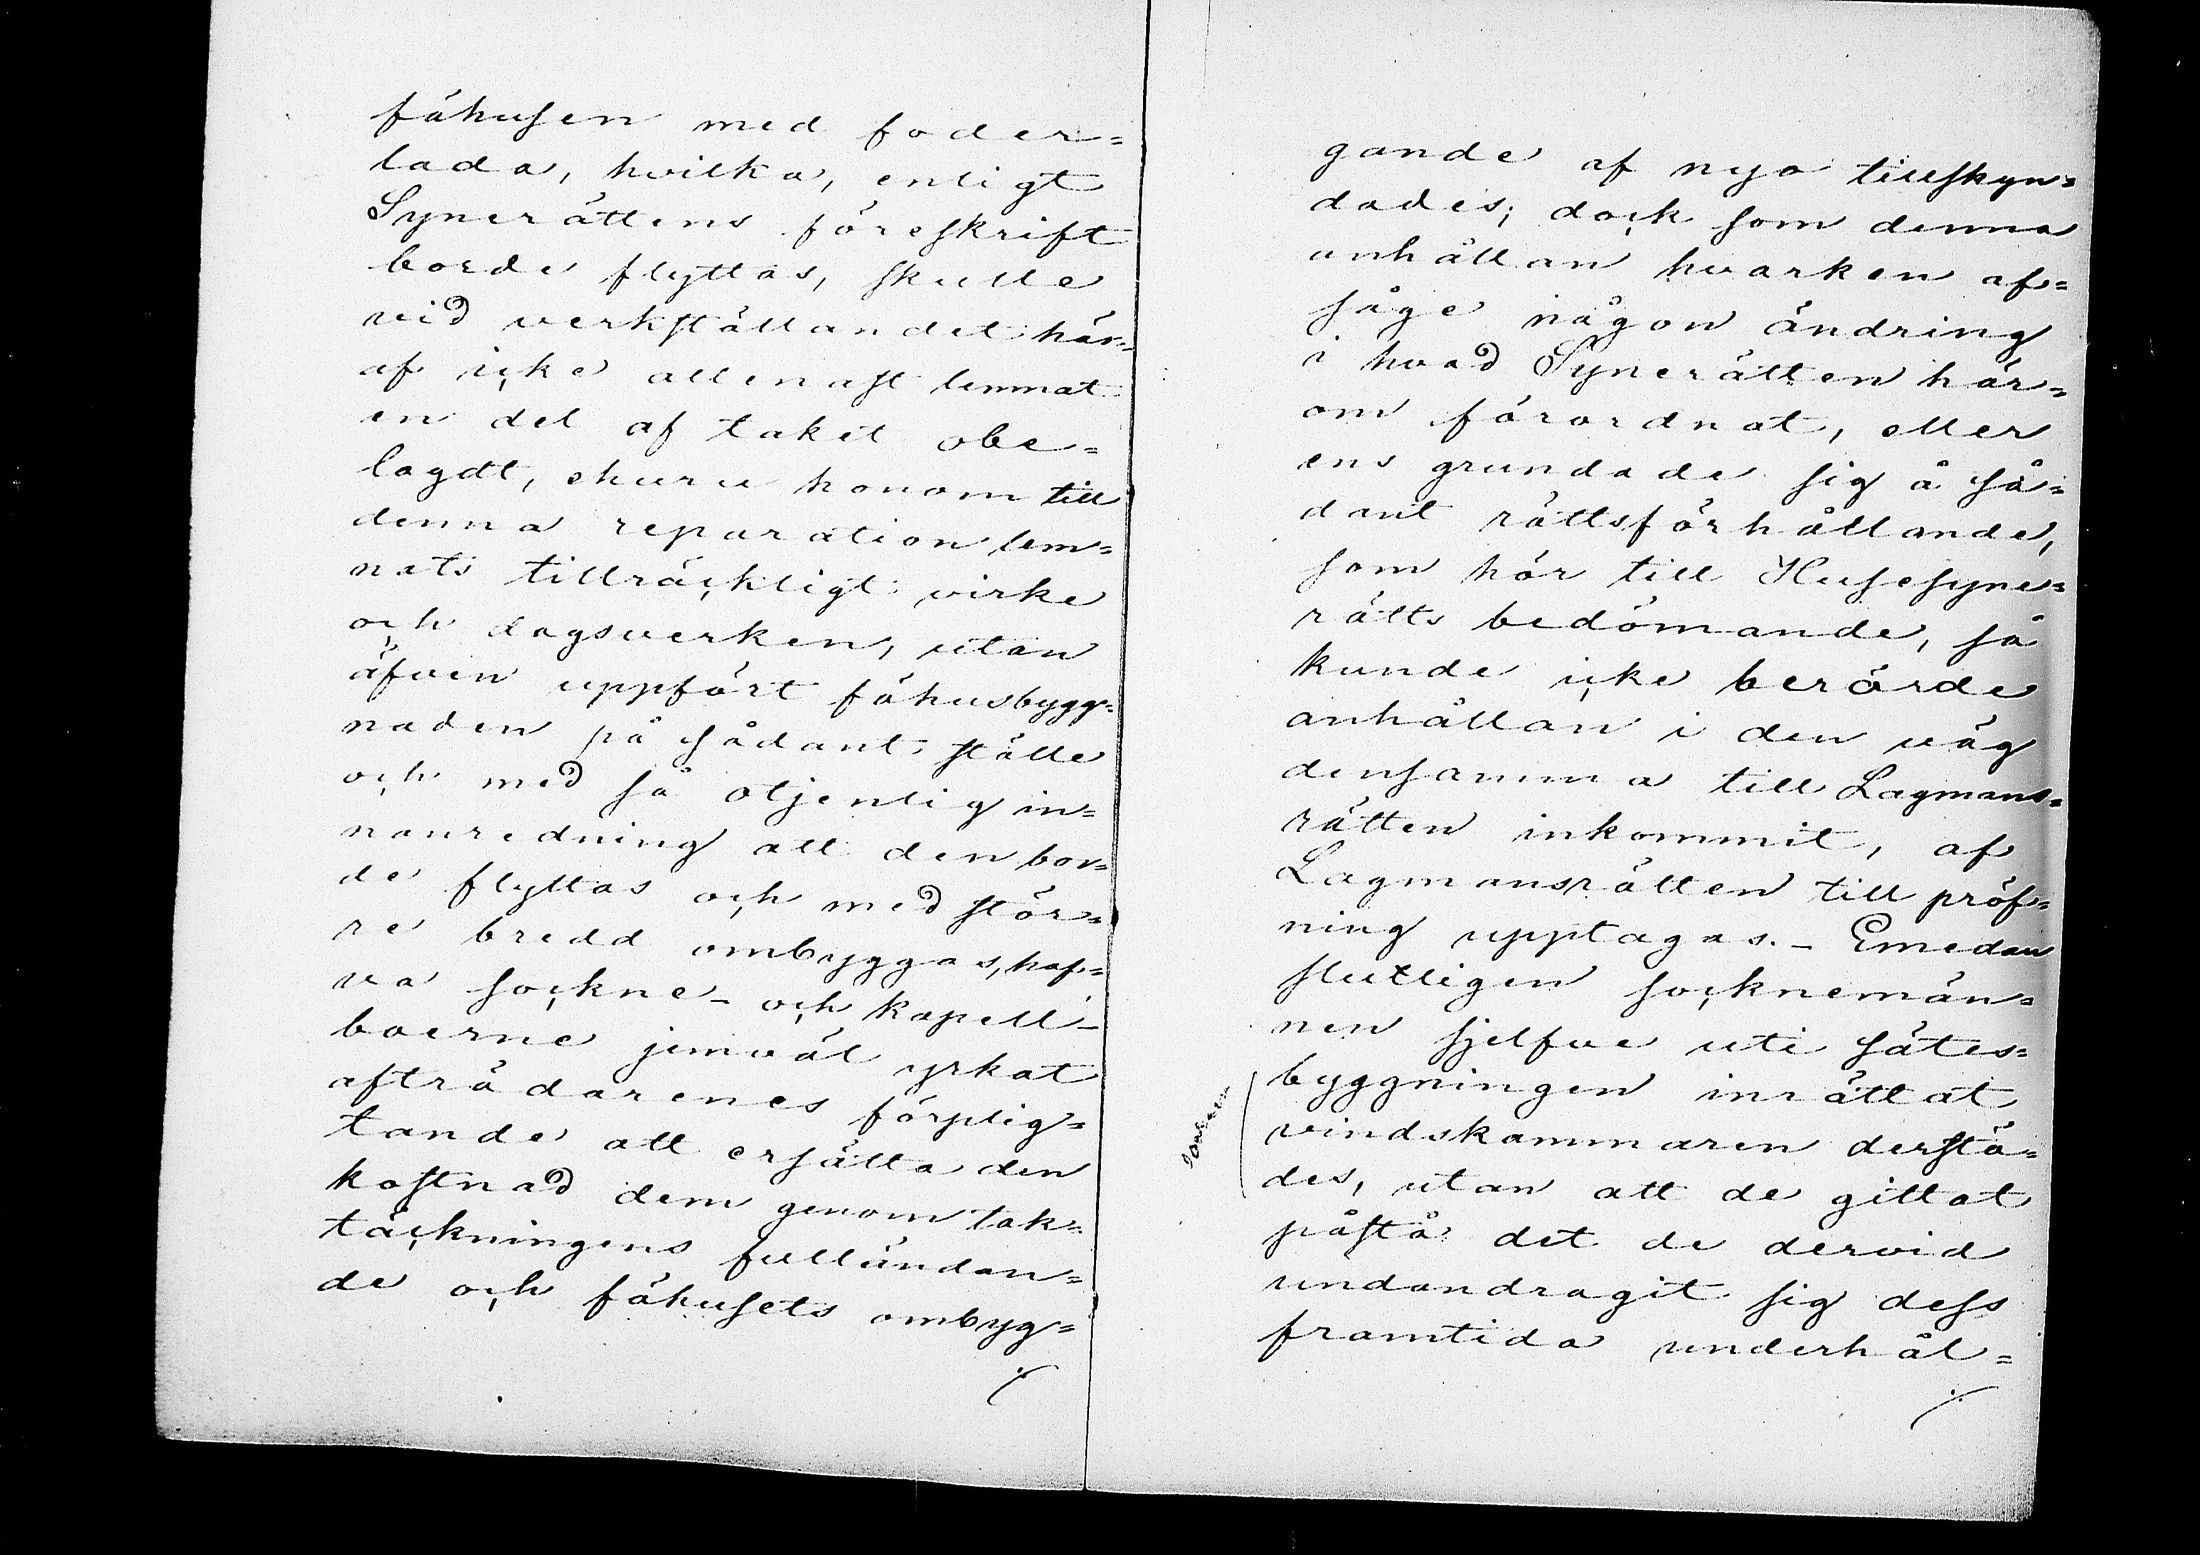 fähusen med foder=
lada, hvilka, enligt
Synerättens föreskrift
borde flyttas, skulle
vid verkställandet här=
af icke allenast lemnat
en del af taket obe=
lagdt, ehuru honom till
denna reparation lem=
nats tillräckligt virke
och dagsverken, utan
äfven uppfört fähusbygg=
naden på sådant ställe
och med så otjenlig in=
nanredning att den bor=
de flyttas och med stör=
re bredd ombyggas, haf=
va sockne- och kapell-
boerne jemväl yrkat
afträdarenes förplig=
tande att ersätta den
kostnad dem genom tak=
täckningens fulländan=
de och fähusets ombyg=
./.
gande af nyo tillskyn=
dades; dock som denna
anhållan hvarken af=
såge någon ändring
i hvad Synerätten här=
om förordnat, eller
ens grundade sig å så=
dant rättsförhållande,
som hör till Husesyne=
rätts bedömande, så
kunde icke berörde
anhållan i den väg
densamma till Lagmans=
rätten inkommit, af
Lagmansrätten till pröf=
ning upptagas. - Emedan
slutligen socknemän=
nen sjelfve uti sätes=
byggningen inrättat
vindskammaren derstä=
des, utan att de gittat
påstå det de dervid
undandragit sig dess
framtida underhål=
./.